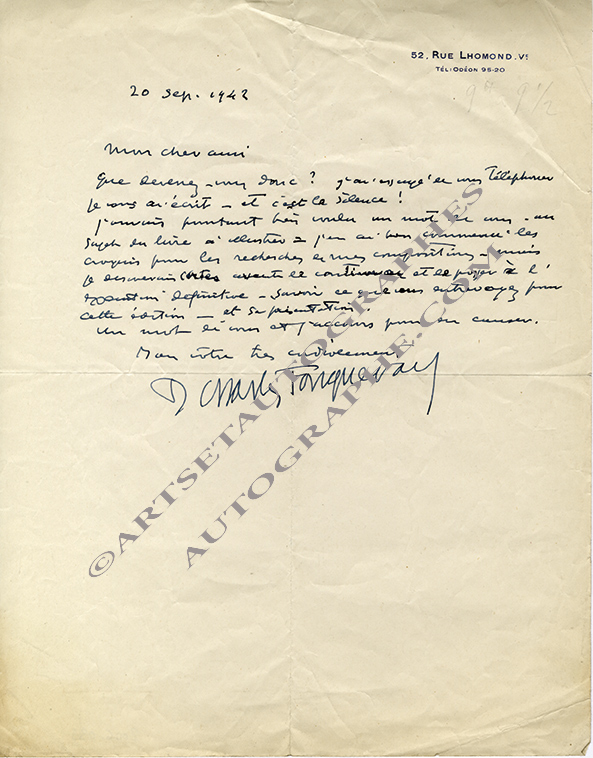 52, RUE LHOMOND. Vᵉ
TÉL: ODÉON 95-20
20 Sep. 1942
9h 9 1/2
Mon cher ami
Que devenez-vous donc? J'ai essayé de vous téléphoner
Je vous ai écrit - et c'est le silence!
J'aurais pourtant très voulu un mot de vous - au
sujet du livre à illustrer - J'en ai bien commencé les
croquis pour les recherches de mes compositions - mais
je désirerais avant de continuer et de passer à l'
exécution définitive - savoir ce que vous entrevoyez pour
cette édition - et sa présentation.
Un mot de vous et j'accours pour en causer.
Bien vôtre très cordialement
D Charles Fouqueray
©ARTSETAUTOGRAPHES
AUTOGRAPHE.COM